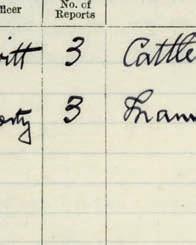 ficer No. of Reports
itt 3 Cattle
rty 3